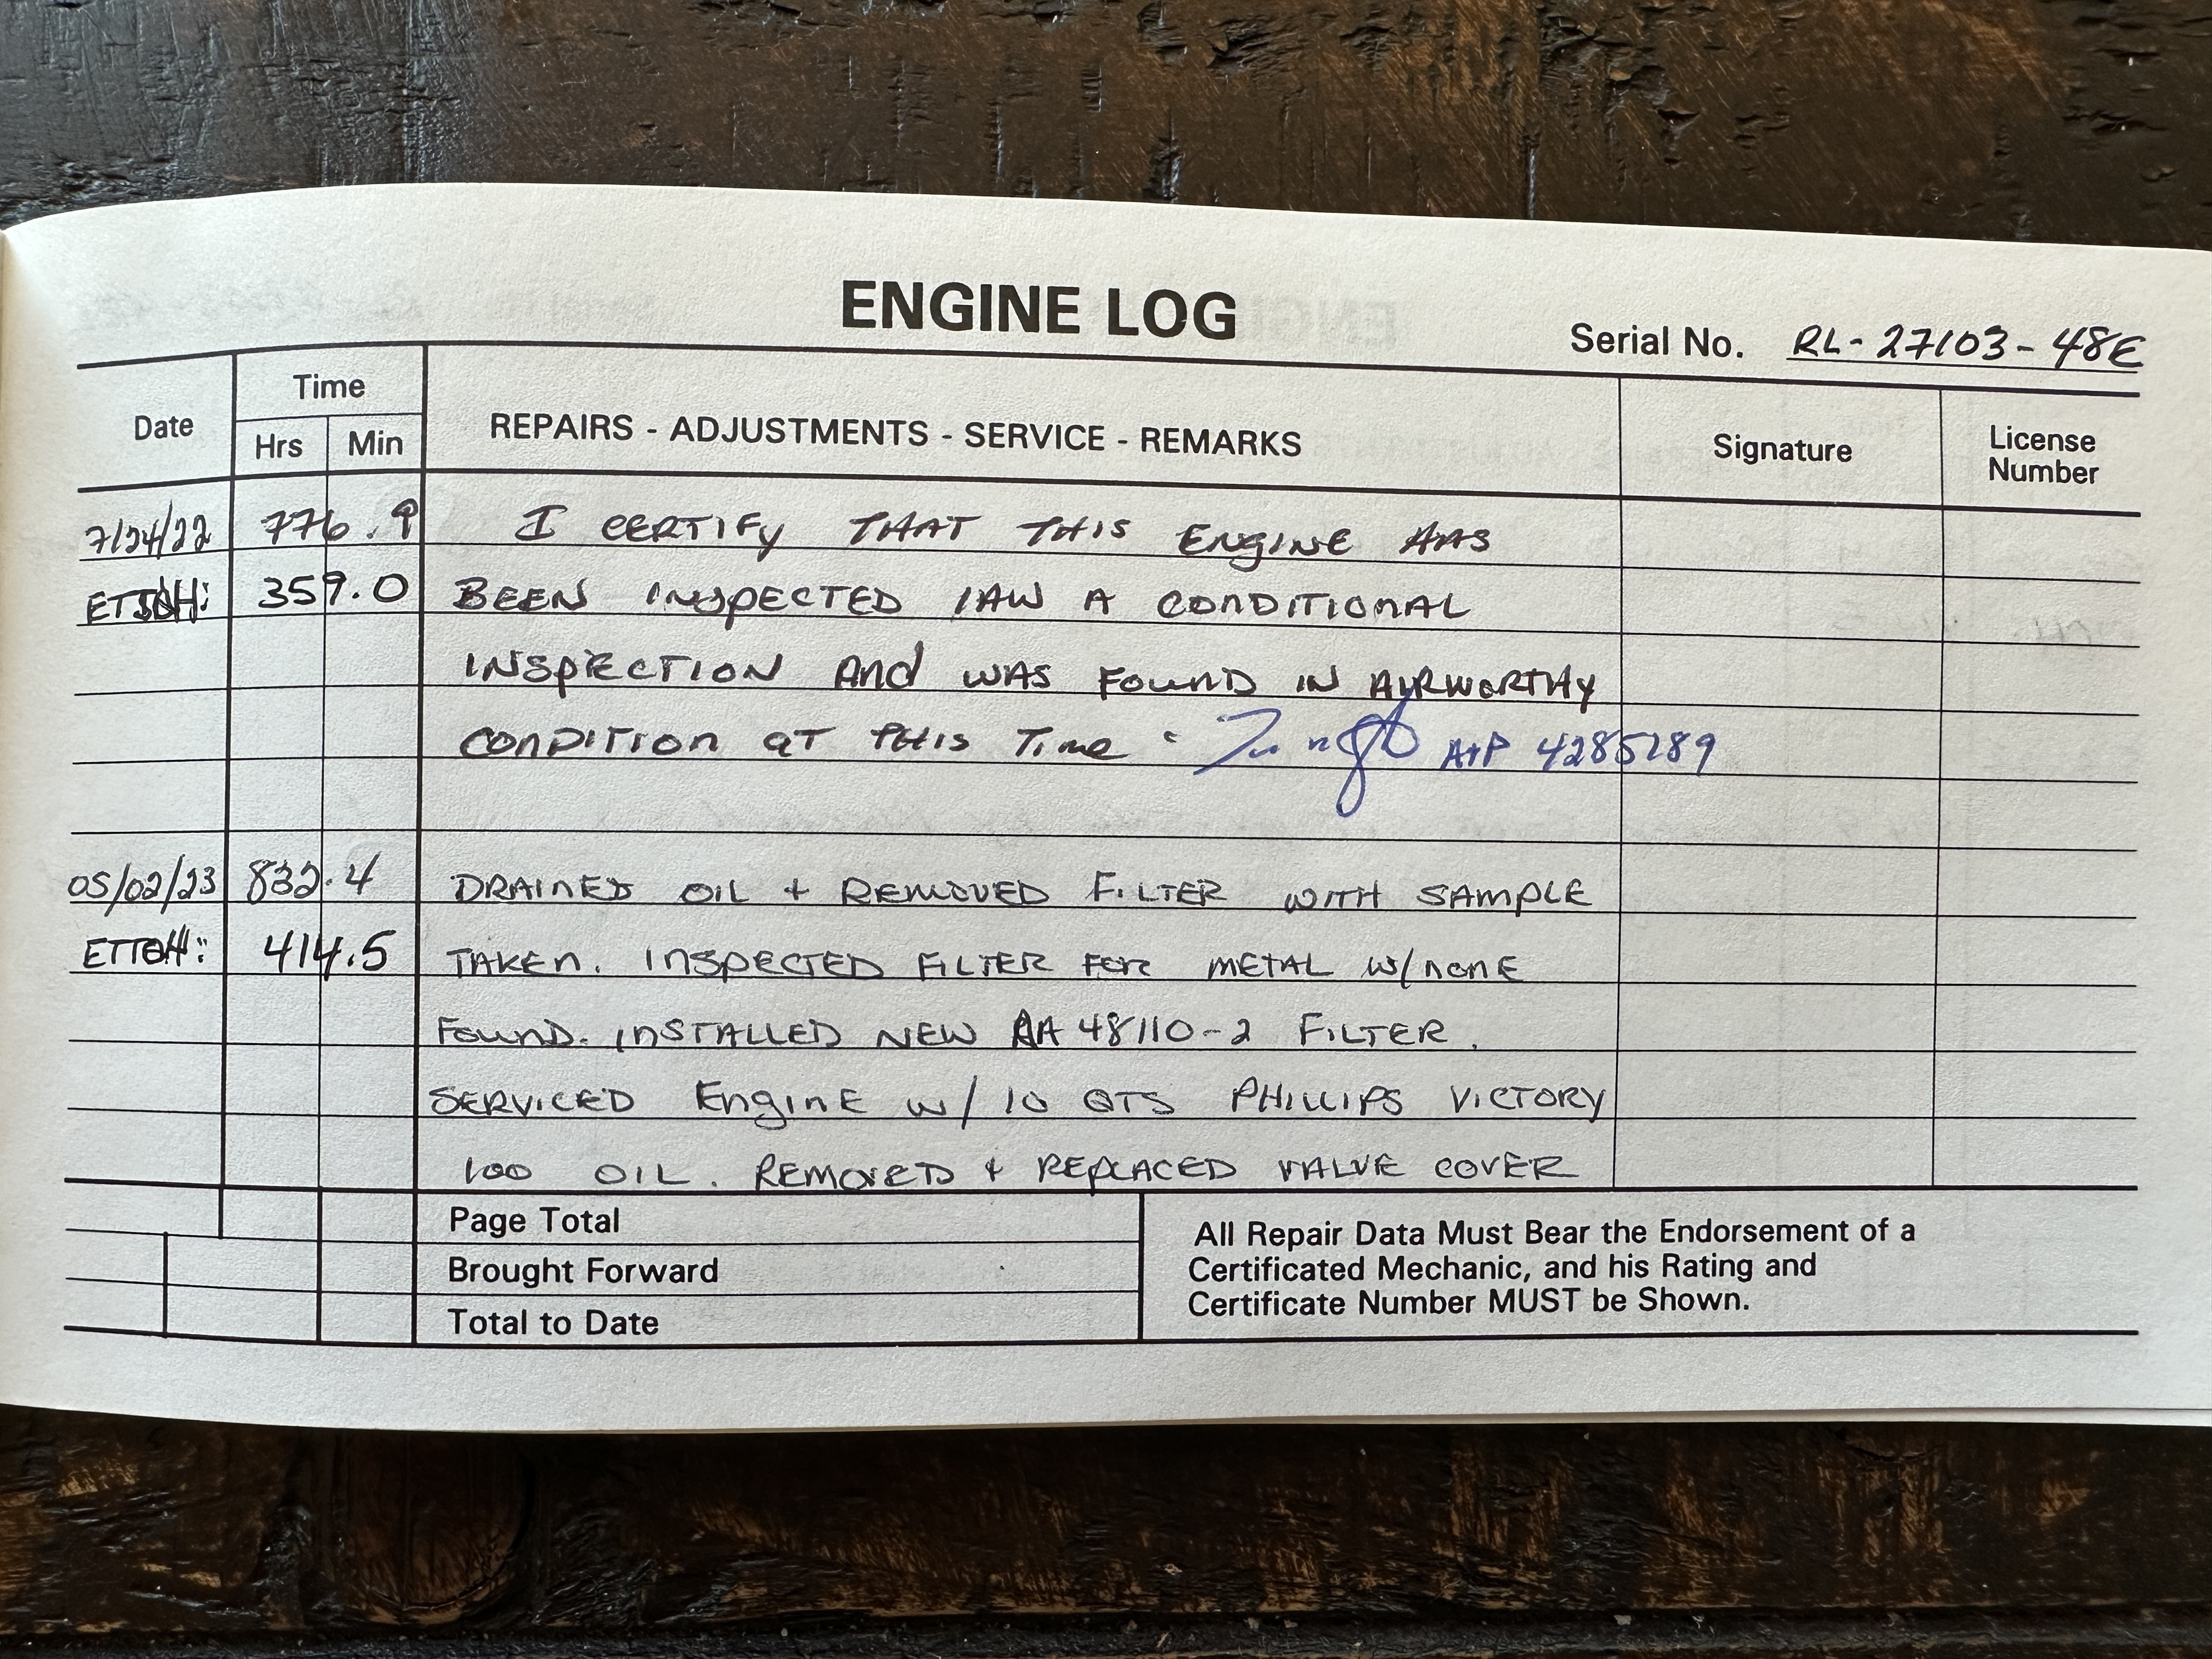 ENGINE LOG
Serial No. RL-27103-48E
Date
Time
Hrs Min
REPAIRS - ADJUSTMENTS - SERVICE - REMARKS
Signature
License
Number
7/24/22 776.9 I CERTIFY THAT THIS ENGINE HAS
359.0 BEEN INSPECTED IAW A CONDITIONAL
INSPECTION And WAS FOUND IN AIRWORTHY
CONDITION AT THIS Time A+P 4285289
05/02/23 832.4 DRAINED OIL + REMOVED FILTER WITH SAMPLE
ETTOH: 414.5 TAKEN. INSPECTED FILTER FOR METAL W/NONE
FOUND. INSTALLED NEW AA 48110-2 FILTER.
SERVICED ENGINE W/ 10 QTS PHILLIPS VICTORY
100 OIL. REMOVED + REPLACED VALVE COVER
Page Total
Brought Forward
Total to Date
All Repair Data Must Bear the Endorsement of a
Certificated Mechanic, and his Rating and
Certificate Number MUST be Shown.